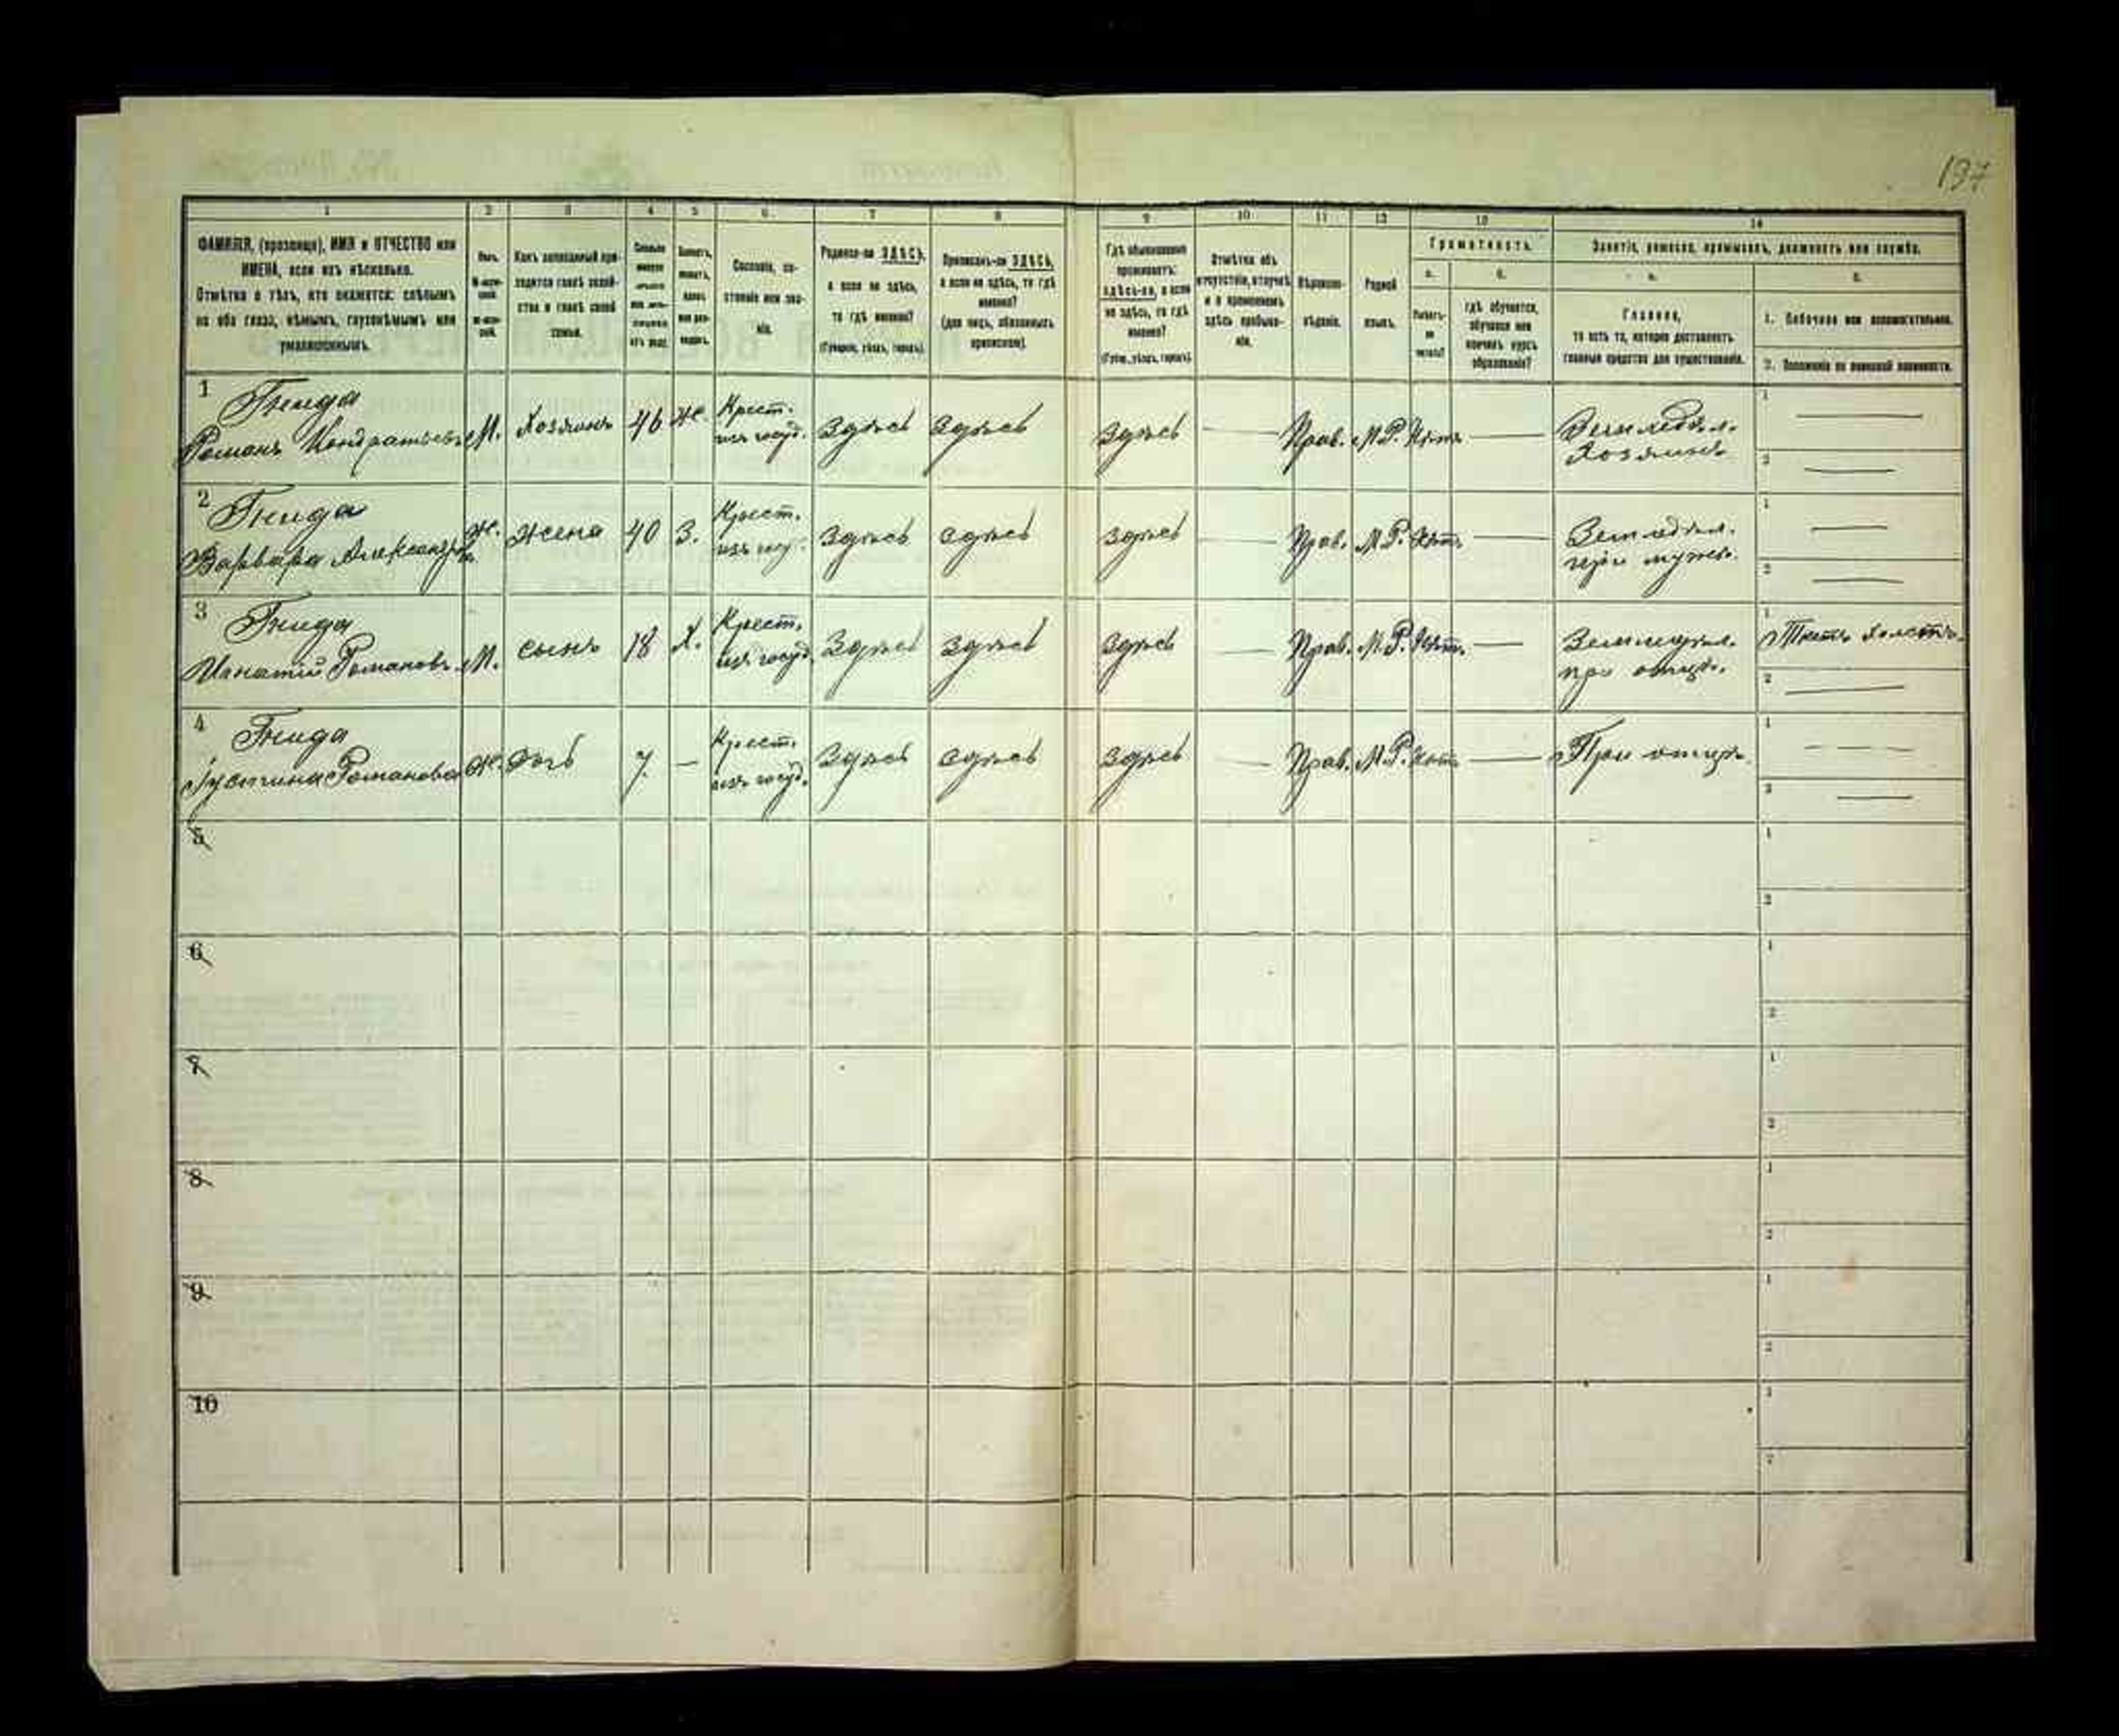 197
1 2 3 4 5 6 7 8 9 10 11 12 13 14
ФАМИЛІЯ, (прозвище), ИМЯ и ОТЧЕСТВО или
ИМЕНА, если ихъ нѣсколько.
Отмѣтка о тѣхъ, кто окажется: слѣпымъ
на оба глаза, нѣмымъ, глухонѣмымъ или
умалишеннымъ.
Полъ.
Какъ записанный при-
ходится главѣ хозяй-
ства и главѣ своей
семьи.
Сословіе, со-
стояніе или зва-
ніе.
Родился-ли ЗДѢСЬ,
а если не здѣсь,
то гдѣ именно?
(Губернія, уѣздъ, городъ).
Приписанъ-ли ЗДѢСЬ,
а если не здѣсь, то гдѣ
именно?
(для лицъ, обязанныхъ
припискою).
Гдѣ обыкновенно
проживаетъ:
здѣсь-ли, а если
не здѣсь, то гдѣ
именно?
(Губ., уѣздъ, городъ).
Отмѣтка объ
отсутствіи, отлучкѣ
и о временномъ
здѣсь пребыва-
ніи.
Вѣроиспо-
вѣданіе.
Родной
языкъ.
Грамотность.
а. б.
Умѣетъ-
ли
читать?
гдѣ обучается,
обучался или
кончилъ курсъ
образованія?
Занятіе, ремесло, промыселъ, должность или служба.
а. б.
Главное,
то есть то, которое доставляетъ
главныя средства для существованія.
1. Побочное или вспомогательное.
2. Положеніе по воинской повинности.
1 Гнида
Романъ Кондратьевъ М. Хозяинъ 46 Ж. Крест. изъ госуд. Здѣсь Здѣсь Здѣсь — Прав. М.Р. Нѣтъ — Земледѣл. Хозяинъ
2 Гнида
Варвара Александр. Ж. Жена 40 З. Крест. изъ госуд. Здѣсь Здѣсь Здѣсь — Прав. М.Р. Нѣтъ — Земледѣл. при мужѣ.
3 Гнида
Игнатій Романовъ М. Сынъ 18 Х. Крест. изъ госуд. Здѣсь Здѣсь Здѣсь — Прав. М.Р. Нѣтъ. — Земледѣл. при отцѣ. Ткетъ холстъ.
4 Гнида
Іустина Романова Ж. Дочь 7 — Крест. изъ госуд. Здѣсь Здѣсь Здѣсь — Прав. М.Р. Нѣтъ — При отцѣ.
5
6
7
8
9
10